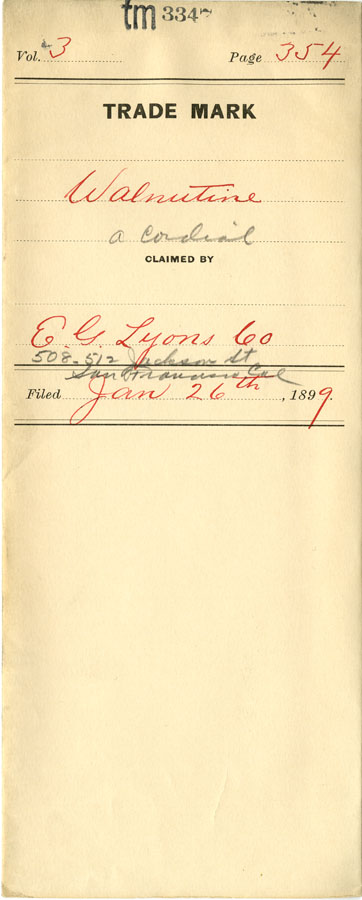 tm 334
Vol. 3 Page 354
TRADE MARK
Walnutine
a Cordial
CLAIMED BY
E. G. Lyons Co
508-512 Jackson St
San Francisco Cal
Filed Jan 26th, 1899.